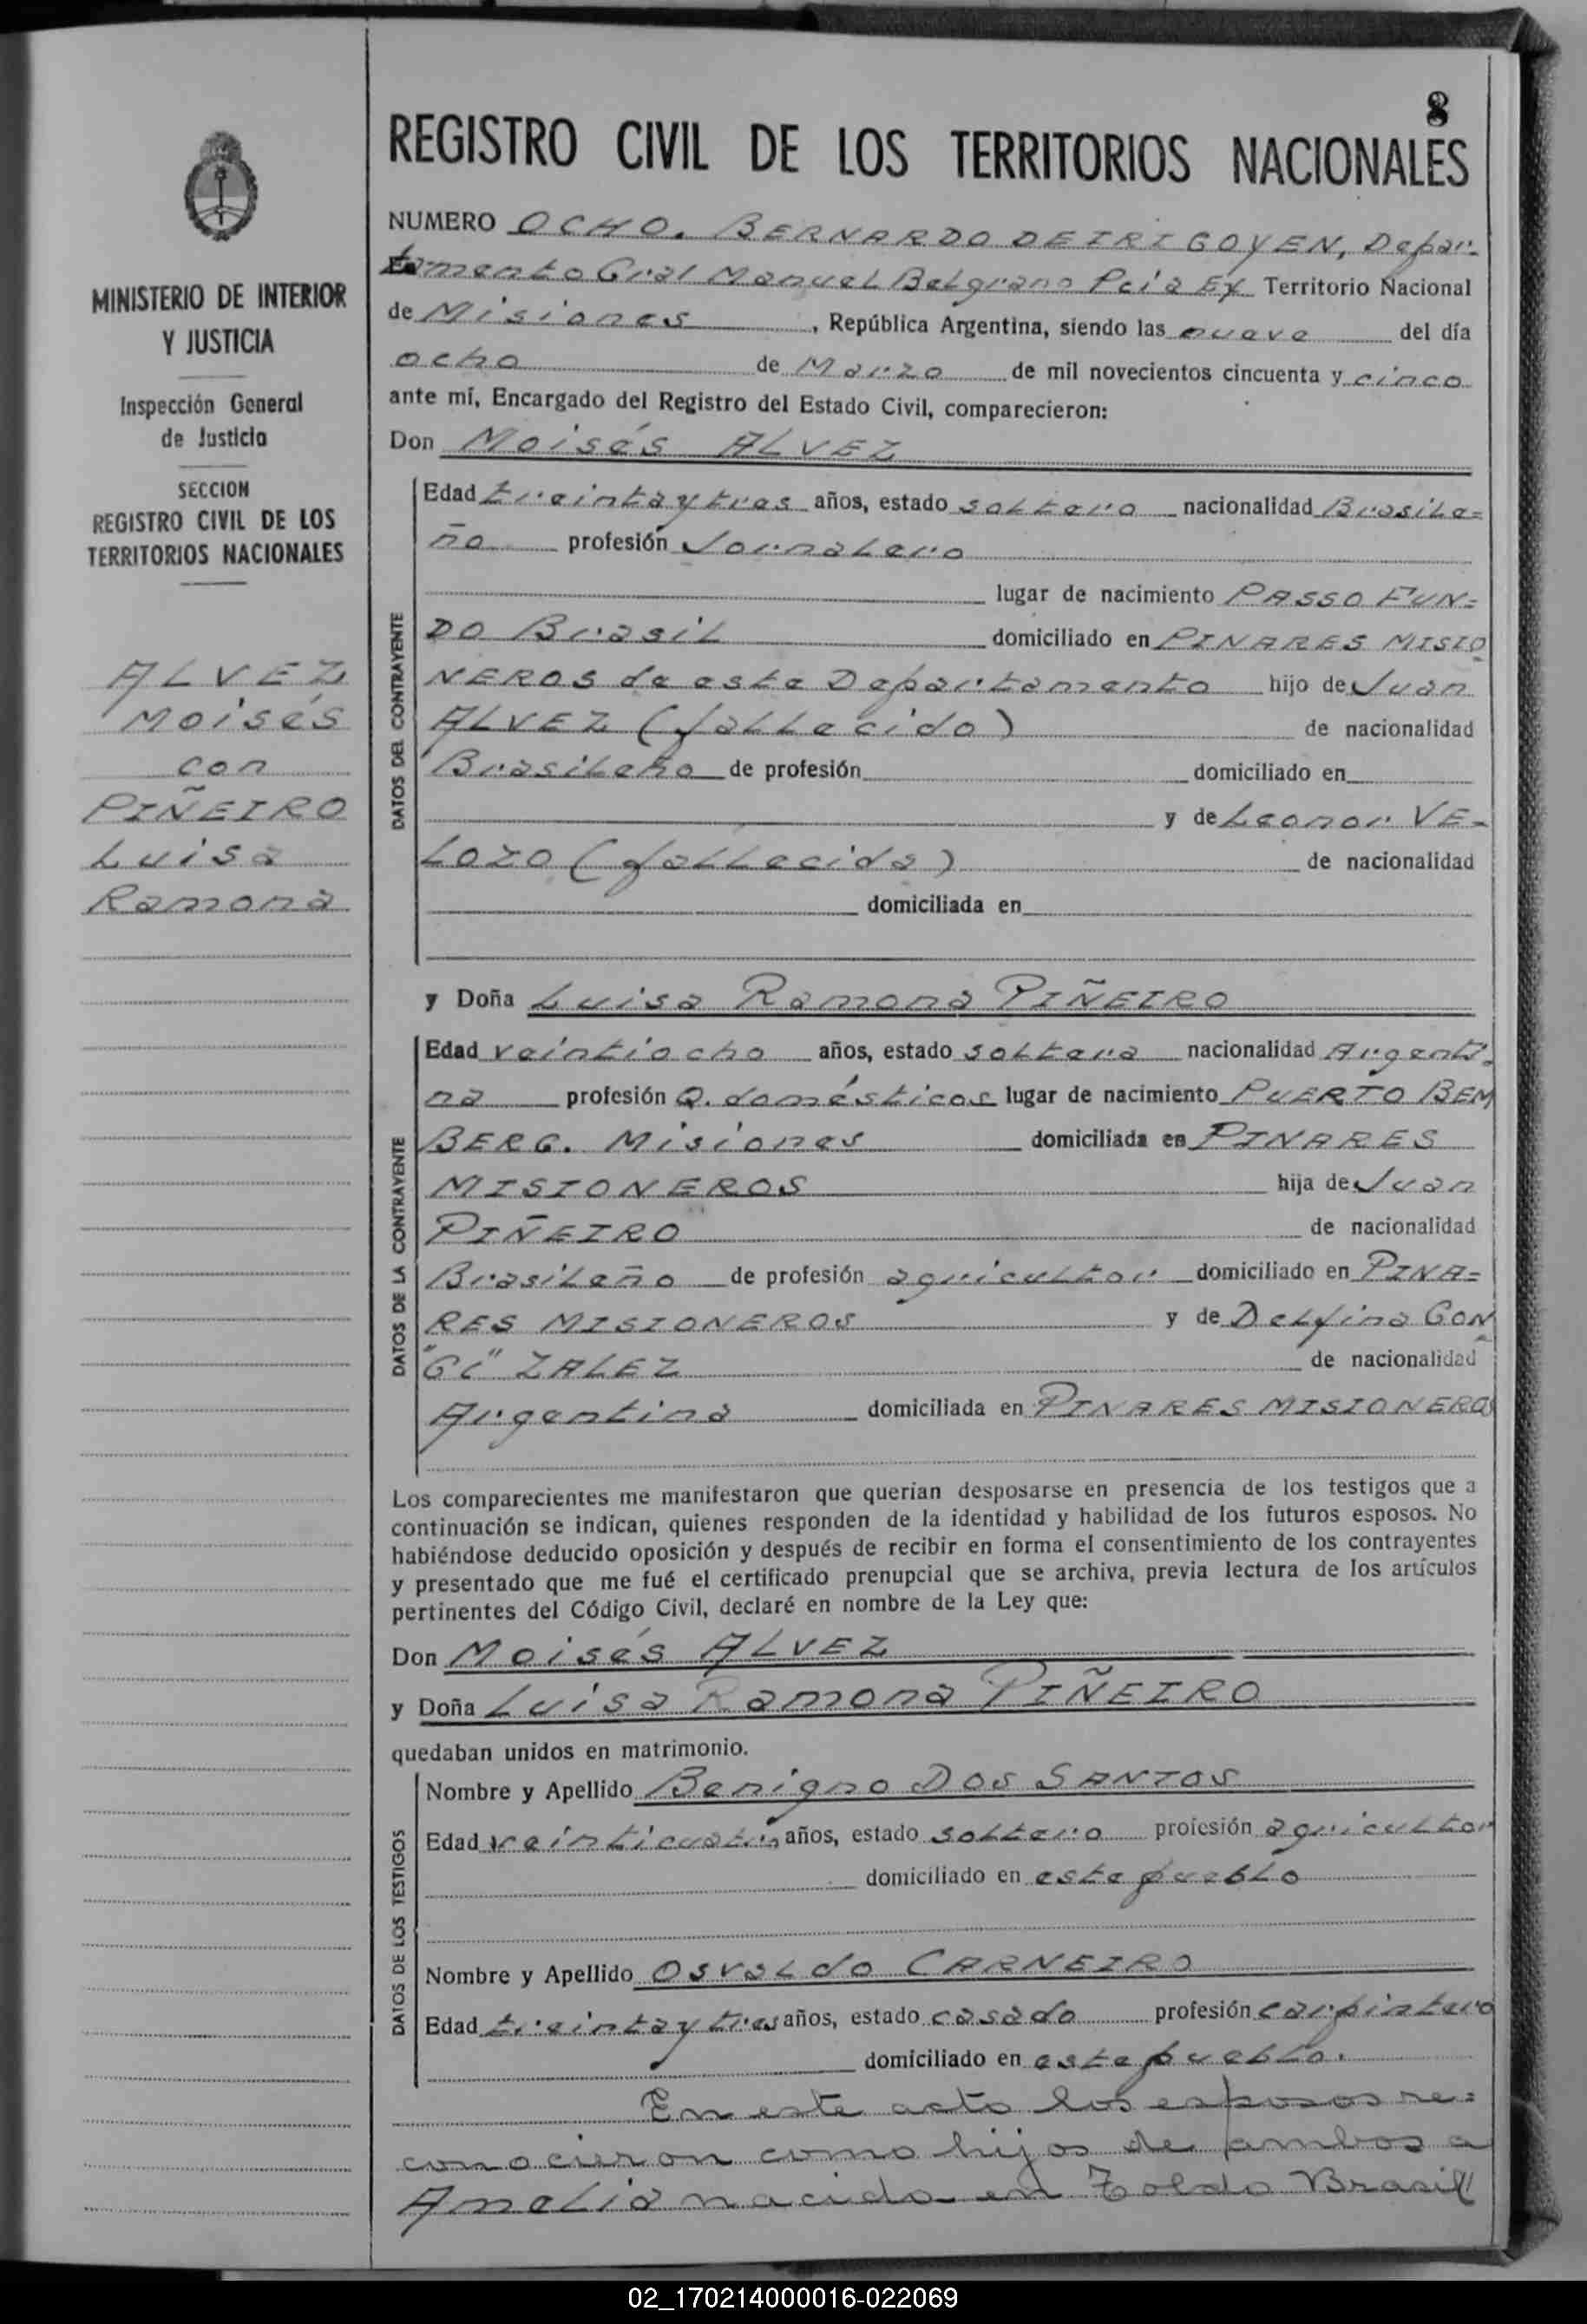 8
REGISTRO CIVIL DE LOS TERRITORIOS NACIONALES
NUMERO OCHO. BERNARDO DE IRIGOYEN, Depar-
tamento Gral Manuel Belgrano Pcia Ex Territorio Nacional
de Misiones, República Argentina, siendo las nueve del día
ocho de Marzo de mil novecientos cincuenta y cinco
ante mí, Encargado del Registro del Estado Civil, comparecieron:
Don Moisés ALVEZ
DATOS DEL CONTRAYENTE
Edad treinta y tres años, estado soltero nacionalidad Brasile=
ño profesión Jornalero
lugar de nacimiento PASSO FUN=
DO Brasil domiciliado en PINARES MISIO
NEROS de este Departamento hijo de Juan
ALVEZ (fallecido) de nacionalidad
Brasileño de profesión domiciliado en
y de Leonor VE-
LOZO (fallecida) de nacionalidad
domiciliada en
y Doña Luisa Ramona PIÑEIRO
DATOS DE LA CONTRAYENTE
Edad veintiocho años, estado soltera nacionalidad Argenti-
na profesión Q. domésticos lugar de nacimiento PUERTO BEM
BERG. Misiones domiciliada en PINARES
MISIONEROS hija de Juan
PIÑEIRO de nacionalidad
Brasileño de profesión agricultor domiciliado en PINA=
RES MISIONEROS y de Delfina GON
ZALEZ de nacionalidad
Argentina domiciliada en PINARES MISIONEROS
Los comparecientes me manifestaron que querian desposarse en presencia de los testigos que a
continuación se indican, quienes responden de la identidad y habilidad de los futuros esposos. No
habiéndose deducido oposición y después de recibir en forma el consentimiento de los contrayentes
y presentado que me fué el certificado prenupcial que se archiva, previa lectura de los artículos
pertinentes del Código Civil, declaré en nombre de la Ley que:
Don Moisés ALVEZ
y Doña Luisa Ramona PIÑEIRO
quedaban unidos en matrimonio.
DATOS DE LOS TESTIGOS
Nombre y Apellido Benigno DOS SANTOS
Edad veinticuatro años, estado soltero profesión agricultor
domiciliado en este pueblo
Nombre y Apellido Osvaldo CARNEIRO
Edad treinta y tres años, estado casado profesión carpintero
domiciliado en este pueblo.
En este acto los esposos re=
conocieron como hijos de ambos a
Amelia nacida en Toldo Brasil
MINISTERIO DE INTERIOR
Y JUSTICIA
Inspección General
de Justicia
SECCION
REGISTRO CIVIL DE LOS
TERRITORIOS NACIONALES
ALVEZ
Moisés
con
PIÑEIRO
Luisa
Ramona
02_170214000016-022069